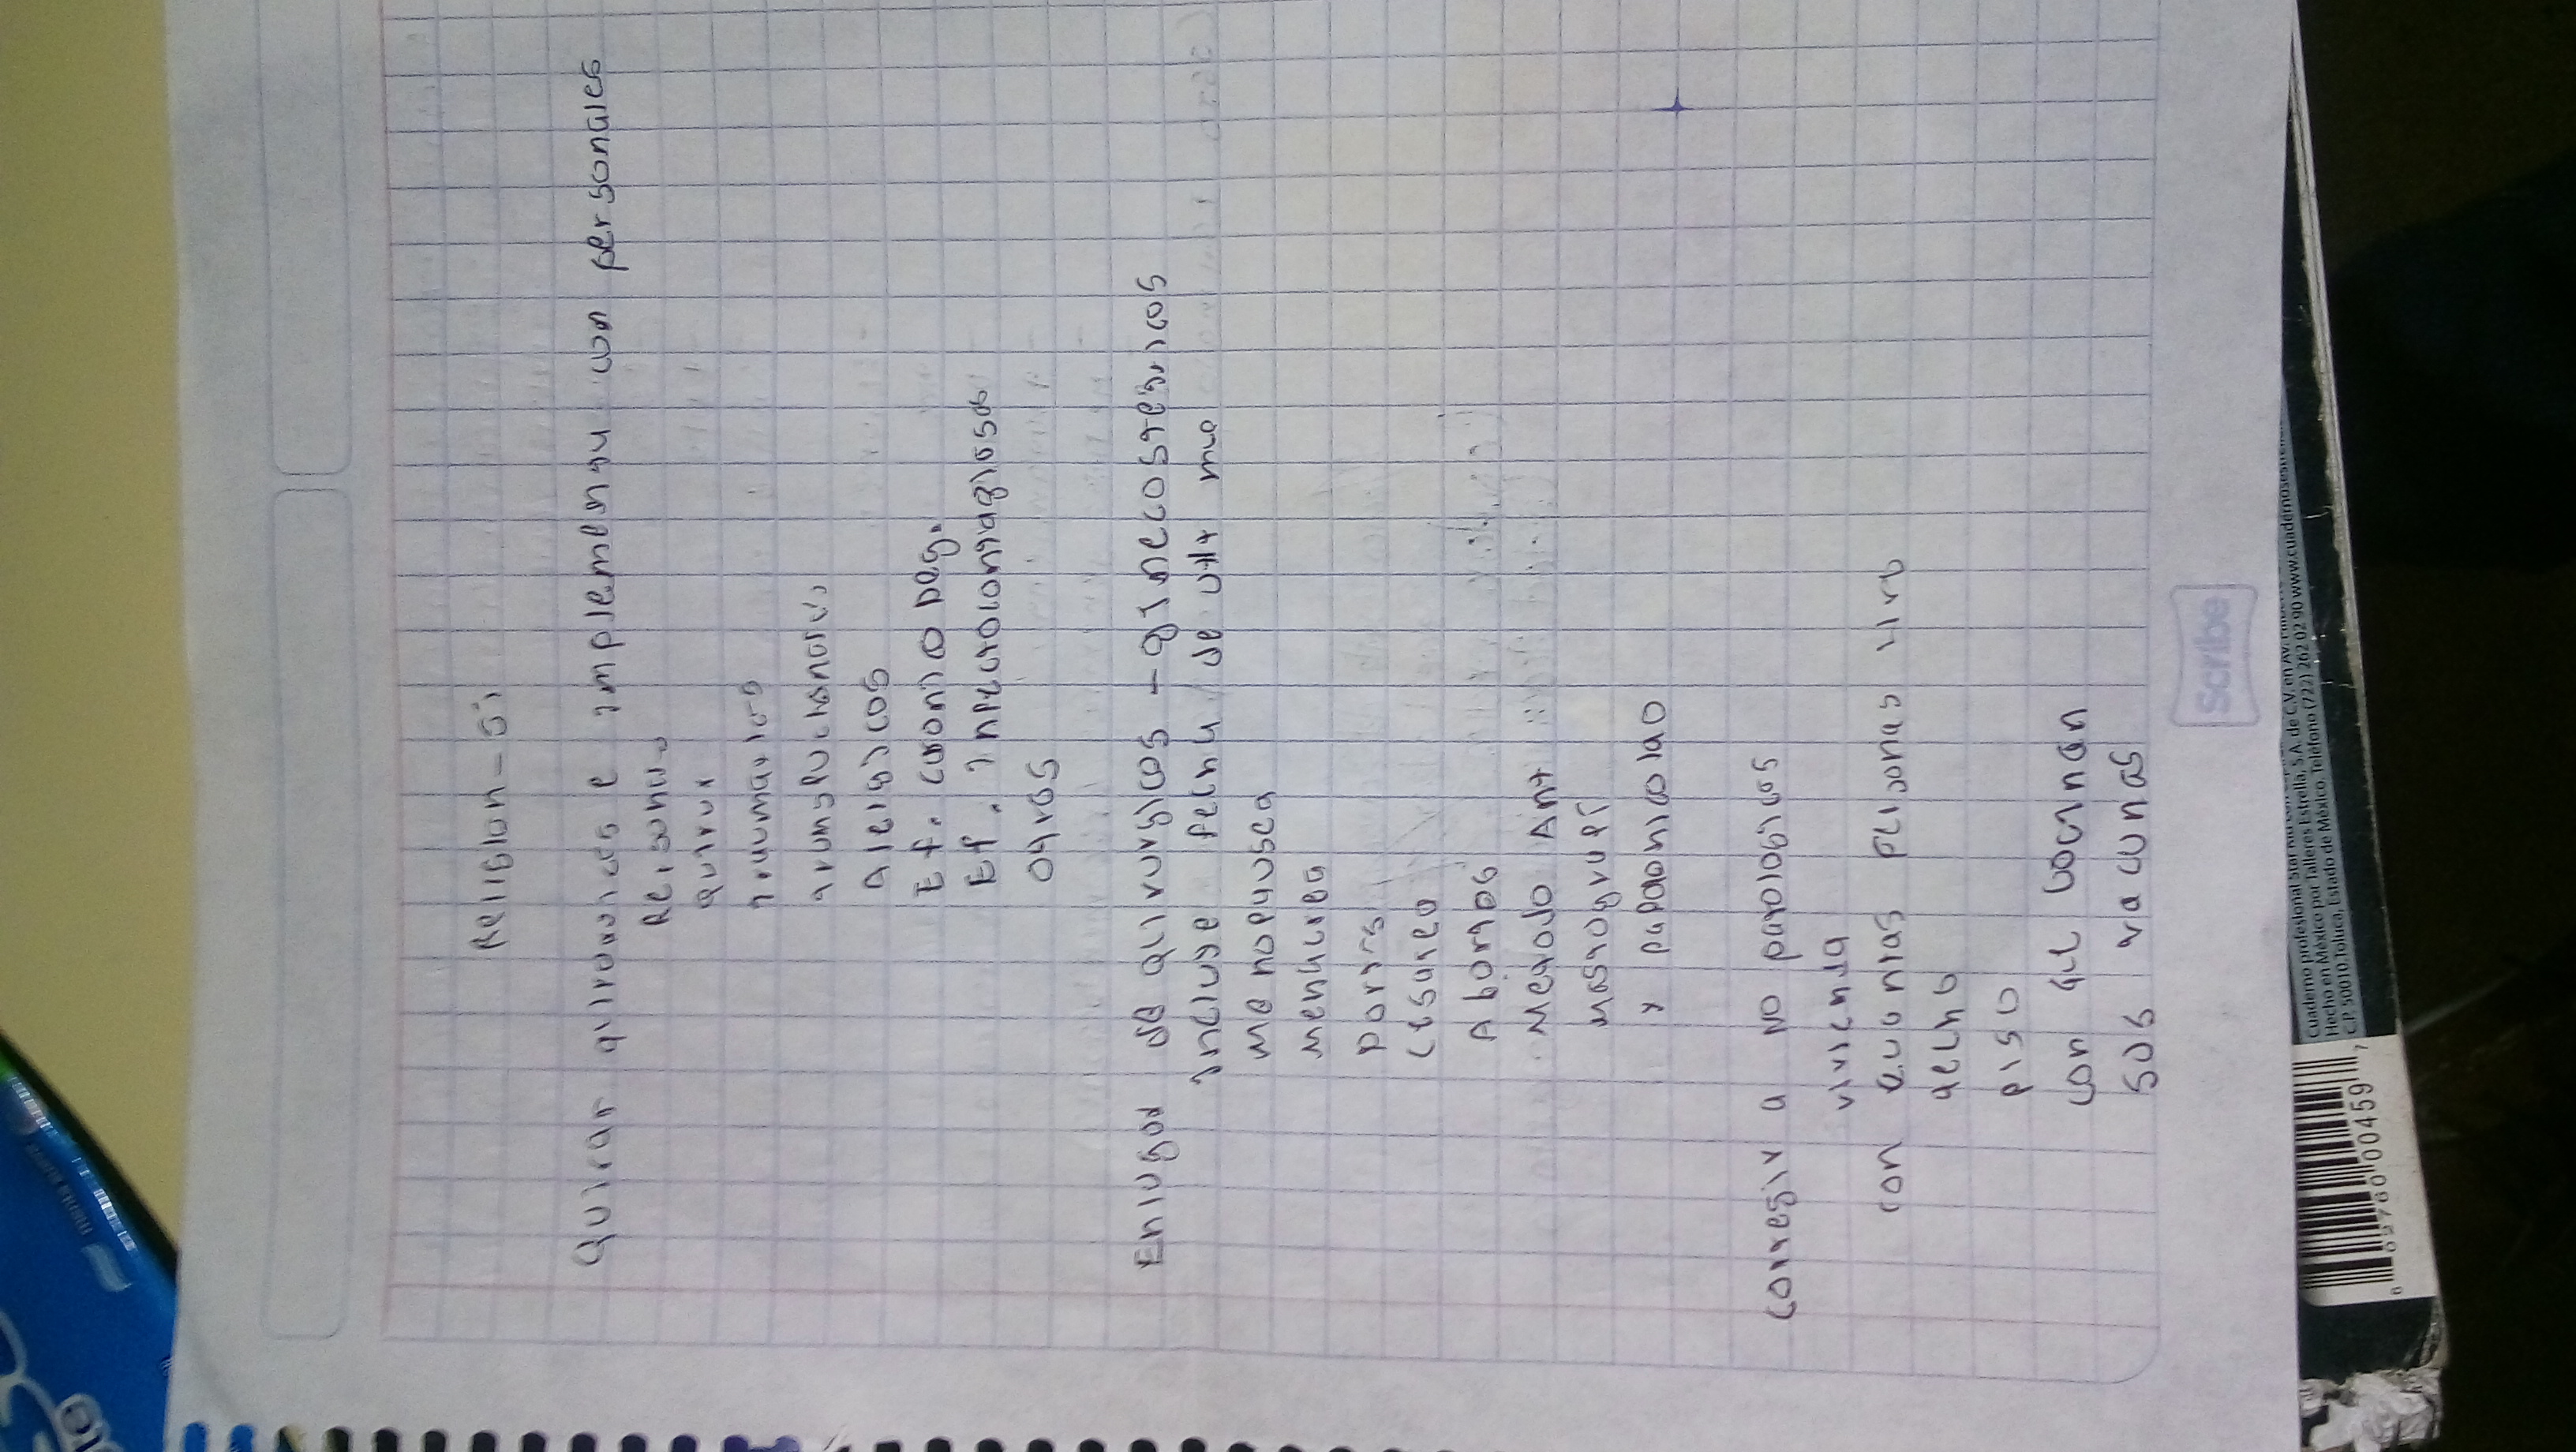 menta suave
Religion - si
Quitar quirurgicos e implementa con personales
Personas
Quirur
traumaticos
transfucionales
Alergicos
Ef. cronico Deg.
Ef. Infectocontagiosas
Otros
En lugar de quirurgicos - ginecostetricos
incluye fecha de ult
menopausea
menacrea
Partos
Cesarea
Abortos
Metodo Ant
mastografi
y papaonicolao
corregir a no patologicos
vivienda
con cuantas personas vive
techo
piso
con que cocinan
sus vacunas
Scribe
Cuaderno profesional Star Kid con
Hecho en México por Talleres Estrella, S.A. de C.V. en AV. www.cuadernosestrella
C.P. 50010 Toluca, Estado de México. Teléfono (722) 262 02 90
6 02760 00459 7